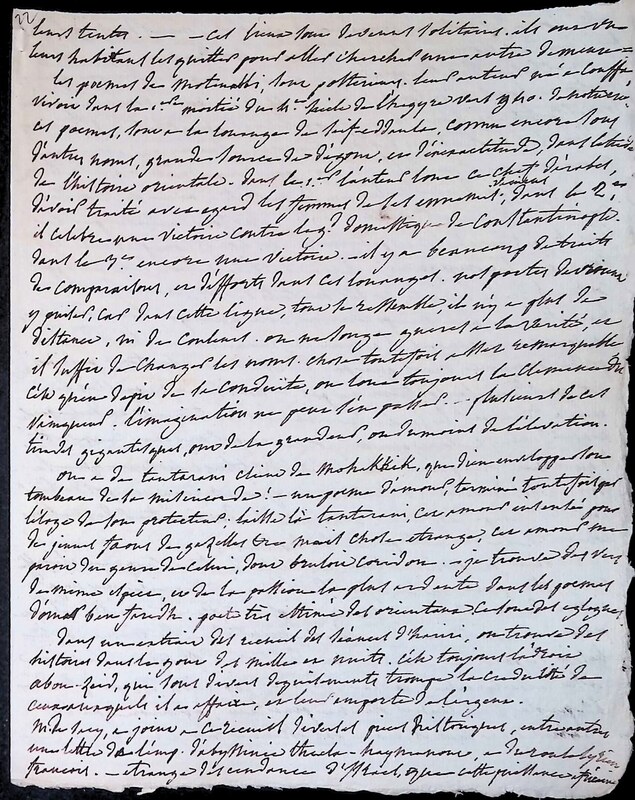 22
leurs tentes. — — ces lieux sont devenus solitaires. ils ont vu
leurs habitans les quitter pour aller chercher une autre demeure =
les poemes de Motanabbi, sont postérieurs. leur auteur né a Couffa
vivoit dans la 1.ere moitié du 4.e siecle de l'hegyre vers 940. de notre ere
ces poemes, sont a la louange de seifeddaula, connu encore sous
d'autres noms, grande source de dégout, et d'inexactitude, dans l'étude
de l'histoire orientale. dans le 1.er l'auteur loue ce chef d'arabes,
d'avoir traité avec egard les femmes de ses ennemis, dans le 2.e
il celebre une victoire contre le g.d domestique de Constantinople.
dans le 3.e encore une victoire. — il y a beaucoup de traits
de comparaisons, et d'efforts dans ces louanges. nos poetes devroient
y puiser, car dans cette ligne, tout se ressemble, il n'y a plus de
distance, ni de couleurs. on ne songe gueres a la vérité, et
il suffit de changer les noms. chose toutefois assez remarquable
c'est qu'en depit de sa conduite, on loue toujours la clemence du
vainqueur. l'imagination ne peut s'en passer. — plusieurs de ces
tirades gigantesques, ont de la grandeur, ou du moins de l'élévation.
on a de tantarani eleve de Mohakkik, que dieu enveloppe son
tombeau de sa misericorde! — un poeme d'amour, terminé toutefois par
l'éloge de son protecteur. laisse là tantarani, ces amours insensés pour
de jeunes faons de gazelles &c mais chose etrange, ces amours me
paroissent du genre de celui, dont bruloit coridon. — je trouve des vers
de meme espece, et de la passion la plus ardente dans les poemes
d'omar ben faredh. poete très estimé des orientaux ce sont des eglogues
Dans un extrait des recueil des seances d'hariri, on trouve des
histoires dans le gout des mille et nuits. c'est toujours l'adroit
abou-zeid, qui sous divers deguisements trompe la credulité de
ceux auxquels il a affaire, et leur emporte de l'argent.
M. de sacy, a joint a ce recueil diverses pieces historiques, entre autres
une lettre de l'emp. d'abyssinie thecla-haymanout, a du roule
francois. — etrange descendance d'israel, que cette puissance